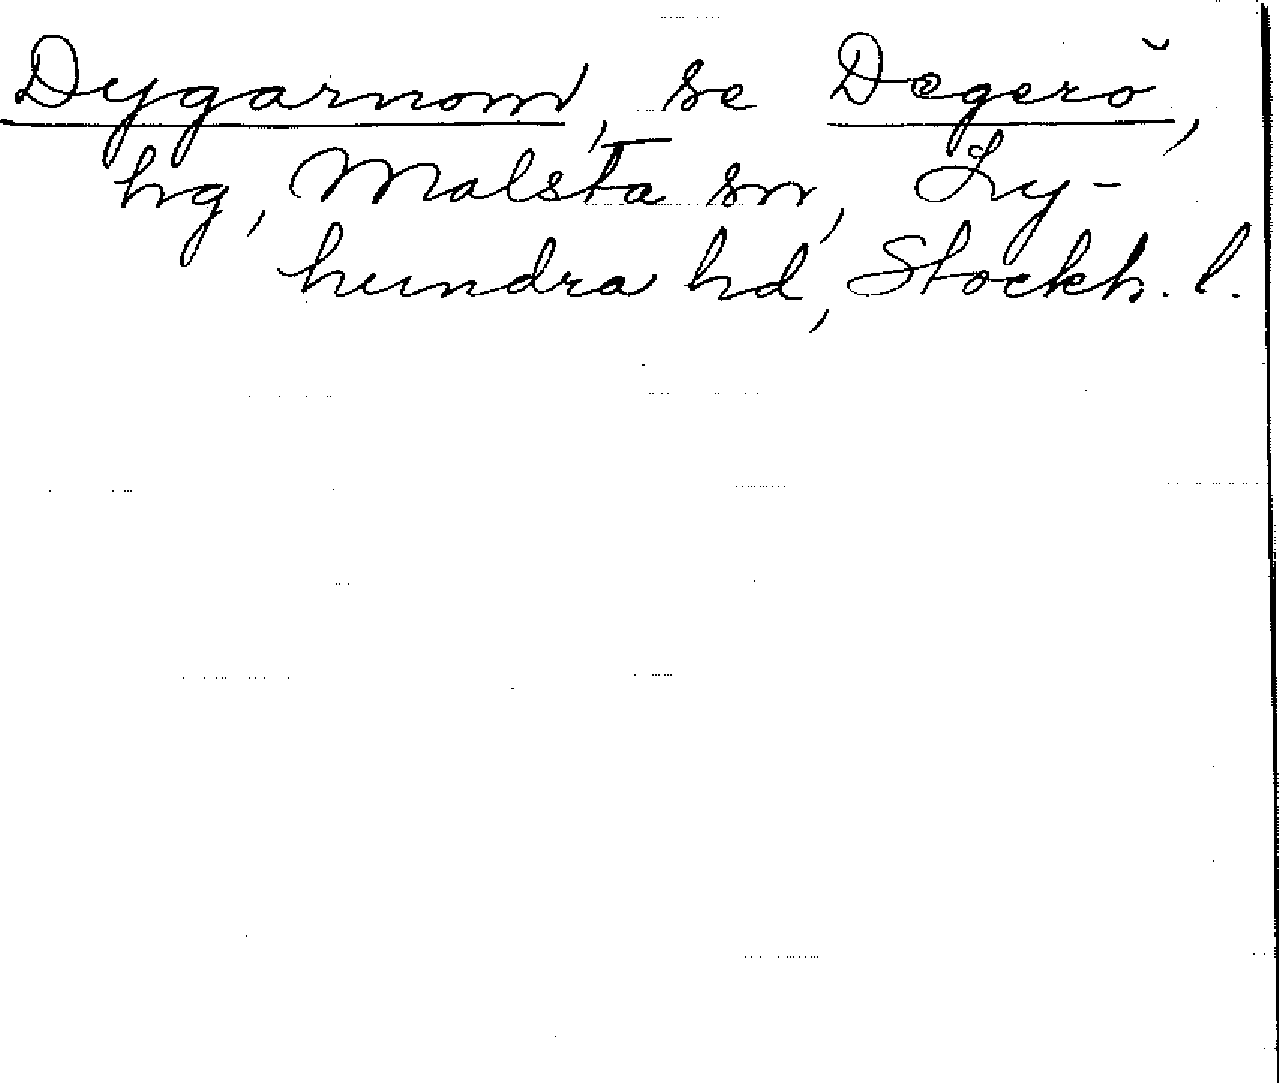 Dygarnom, se Degerö,
hg, Malsta sn, Ly-
hundra hd, Stockh. l.